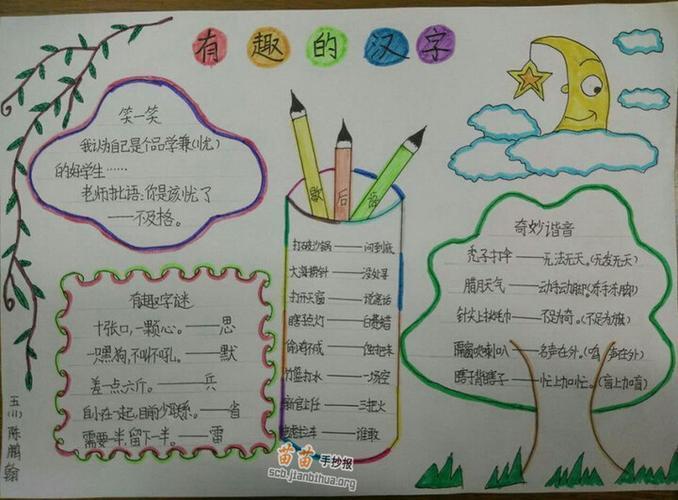 有趣的汉字
笑一笑
我认为自己是个品学兼(忧)
的好学生……
老师批语:你是该忧了
——不及格。
有趣字谜
十张口,一颗心。——思
一只黑狗,不叫不吼。——默
差点六斤。——兵
需要一半,留下一半。——雷
歇后语
打破沙锅——问到底
大海捞针——没处寻
打开天窗——说亮话
竹篮打水——一场空
新官上任——三把火
奇妙谐音
秃子打伞——无法无天。(无发无天)
腊月天气——动手动脚。(冻手冻脚)
针尖上
——不足为奇。(不足为旗)
隔窗吹喇叭——名声在外。(鸣声在外)
瞎子背瞎子——忙上加忙。(盲上加盲)
五(1)陈鹏翰
苗苗手抄报
scb.jianbihua.org